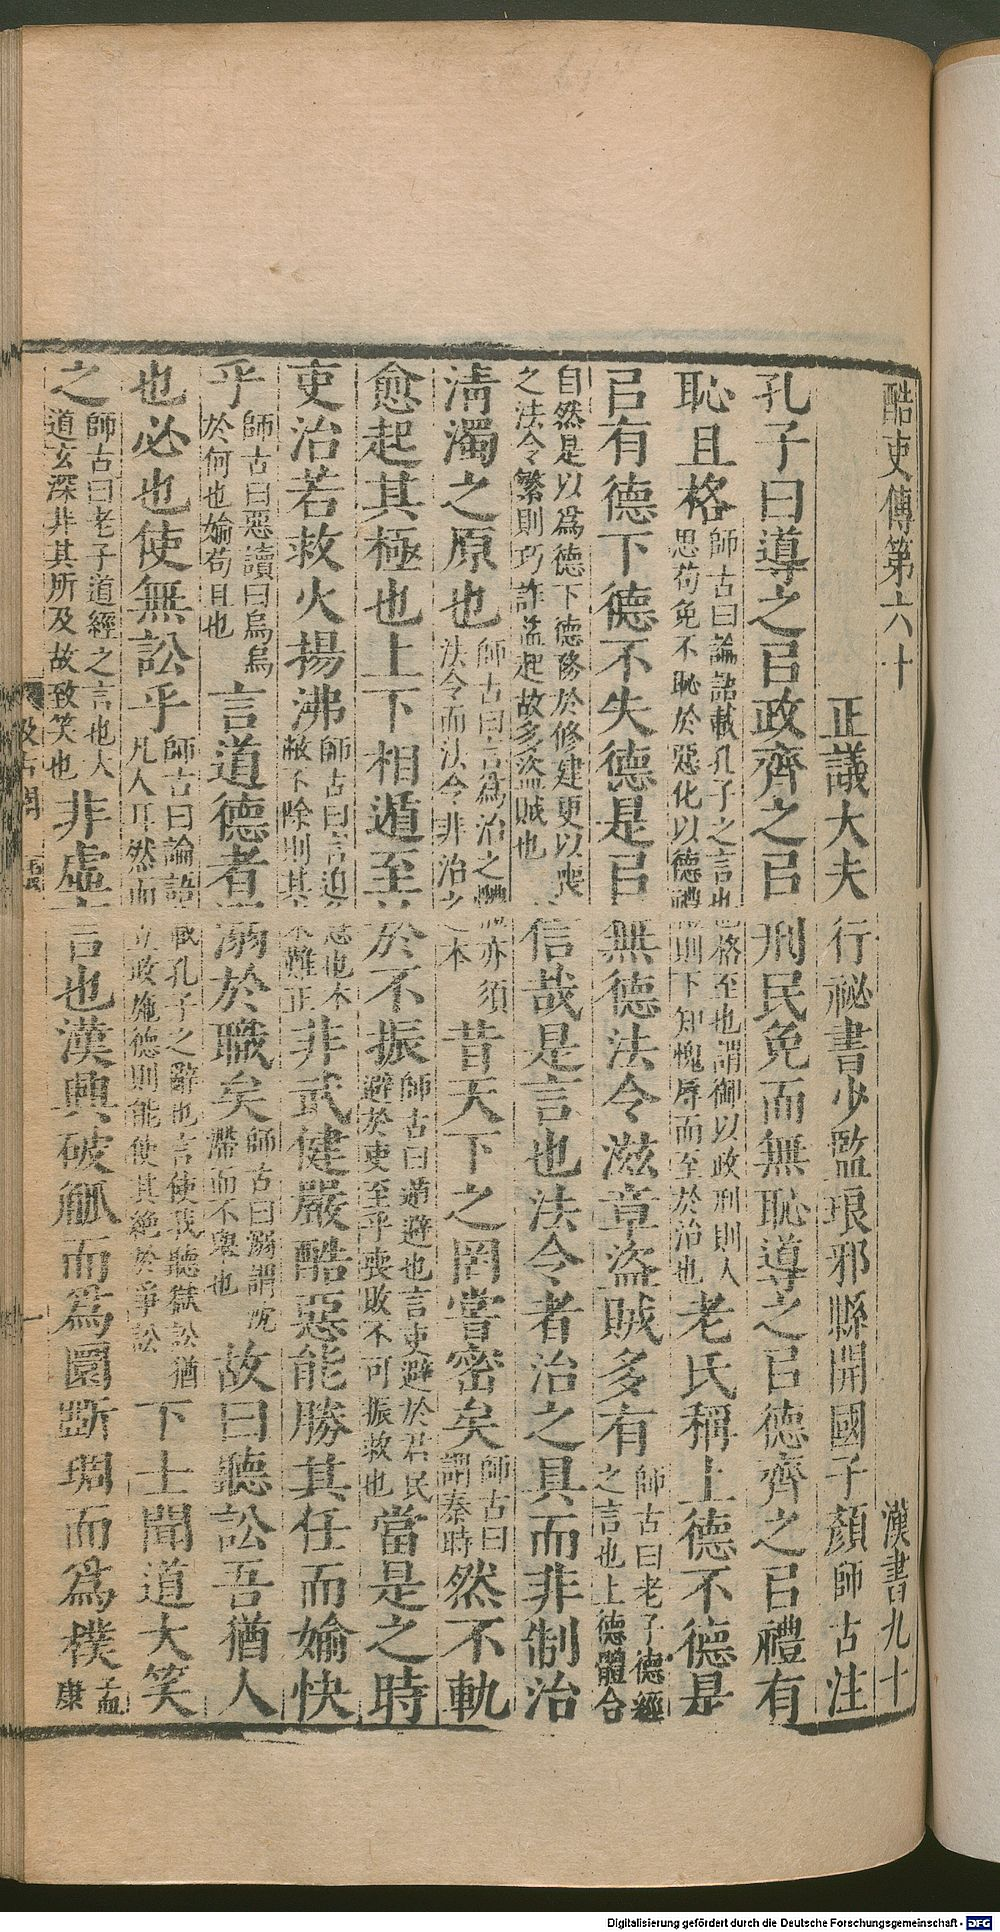 酷吏傳第六十　漢書九十
正議大夫行祕書少監琅邪縣開國子顏師古注
孔子曰導之㠯政齊之㠯刑民免而無恥導之㠯德齊之㠯禮有
恥且格師古曰論語載孔子之言也格至也謂御以政刑則人思苟免不恥於惡化以德禮則下知愧辱而至於治也老氏稱上德不德是
㠯有德下德不失德是㠯無德法令滋章盜賊多有師古曰老子德經之言也上德體合
自然是以爲德下德務於修建更以喪之法令繁則巧詐益起故多盜賊也信哉是言也法令者治之具而非制治
清濁之原也師古曰言爲治之體亦須法令而法令非治之本昔天下之罔嘗密矣師古曰謂秦時然不軌
愈起其極也上下相遁至於不振師古曰遁避也言吏避於君民避於吏至乎喪敗不可振救也當是之時
吏治若救火揚沸師古曰言迫急也本敝不除則其末難正非武健嚴酷惡能勝其任而媮快
乎師古曰惡讀曰烏烏於何也媮苟且也言道德者溺於職矣師古曰溺謂沈滯而不舉也故曰聽訟吾猶人
也必也使無訟乎師古曰論語載孔子之辭也言使我聽獄訟猶凡人耳然而立政施德則能使其絕於爭訟下士聞道大笑
之師古曰老子道經之言也大道玄深非其所及故致笑也非虛言也漢興破觚而爲圜斷琱而爲樸孟康
汲古閣
毛氏
一
Digitalisierung gefördert durch die Deutsche Forschungsgemeinschaft - DFG